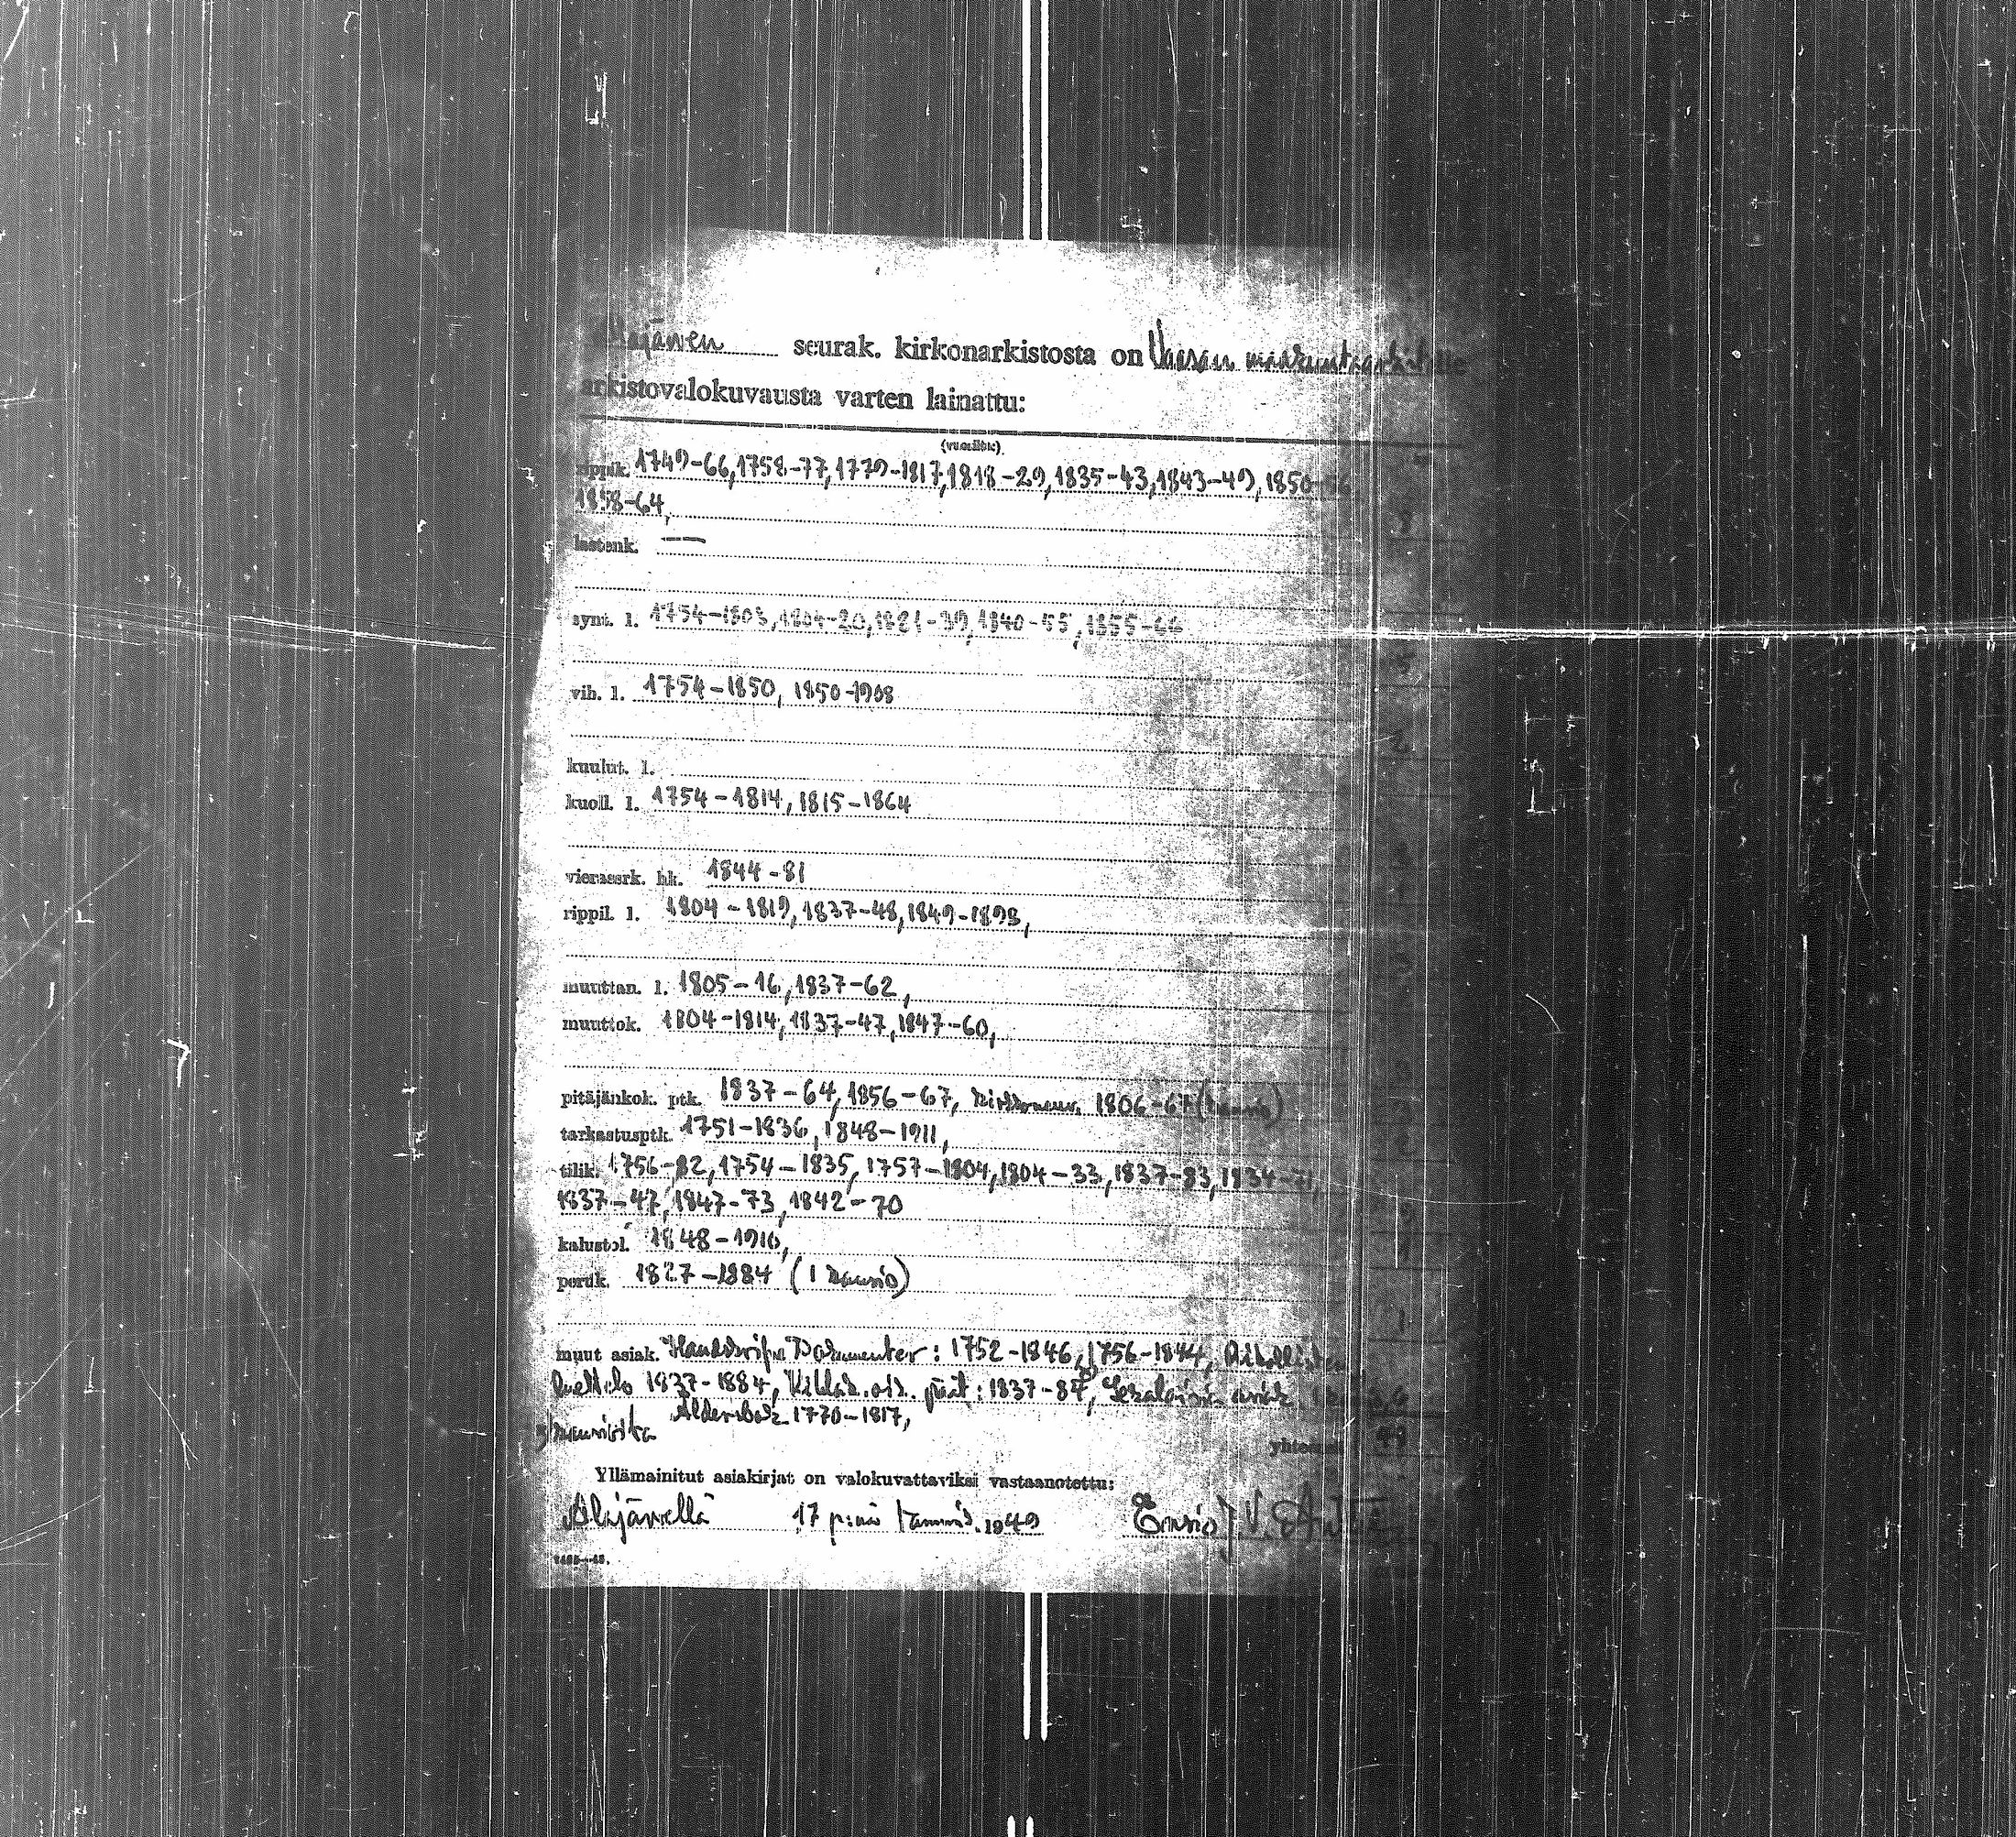 Alajärven seurak. kirkonarkistosta on Vaasan maakuntaarkistoo
arkistovalokuvausta varten lainattu:
(vuosiluc)
rippik. 1749-66, 1758-77, 1779-1817, 1818-29, 1835-43, 1843-49, 1850-56
1858-64, 8
lastenk. —
synt. l. 1754-1803, 1804-20, 1821-39, 1840-55, 1855-66
5
vih. l. 1754-1850, 1850-1908
2
kuulut. l.
kuoll. l. 1754-1814, 1815-1864
vierassrk. hk. 1844-81
rippil. l. 1804-1819, 1837-48, 1849-1898,
muuttan. l. 1805-16, 1837-62,
muuttok. 1804-1814, 1837-47, 1847-60,
pitäjänkok. ptk. 1837-64, 1856-67, 1806-67
tarkastusptk. 1751-1836, 1848-1911,
tilik. 1756-82, 1754-1835, 1757-1804, 1804-33, 1837-83, 1834-71,
1837-47, 1847-73, 1842-70
kalustol. 1848-1910,
perük. 1827-1884 (1 kansio)
1
muut asiak. Handskrifna Dokumenter: 1752-1846, 1756-1844,
luettelo 1837-1884, 1837-84,
Åldersbok 1770-1817,
kansiota yhteensä
Yllämainitut asiakirjat on valokuvattaviksi vastaanotettu:
Alajärvellä 17 p:nä tammik. 1949 Ensio J. V.